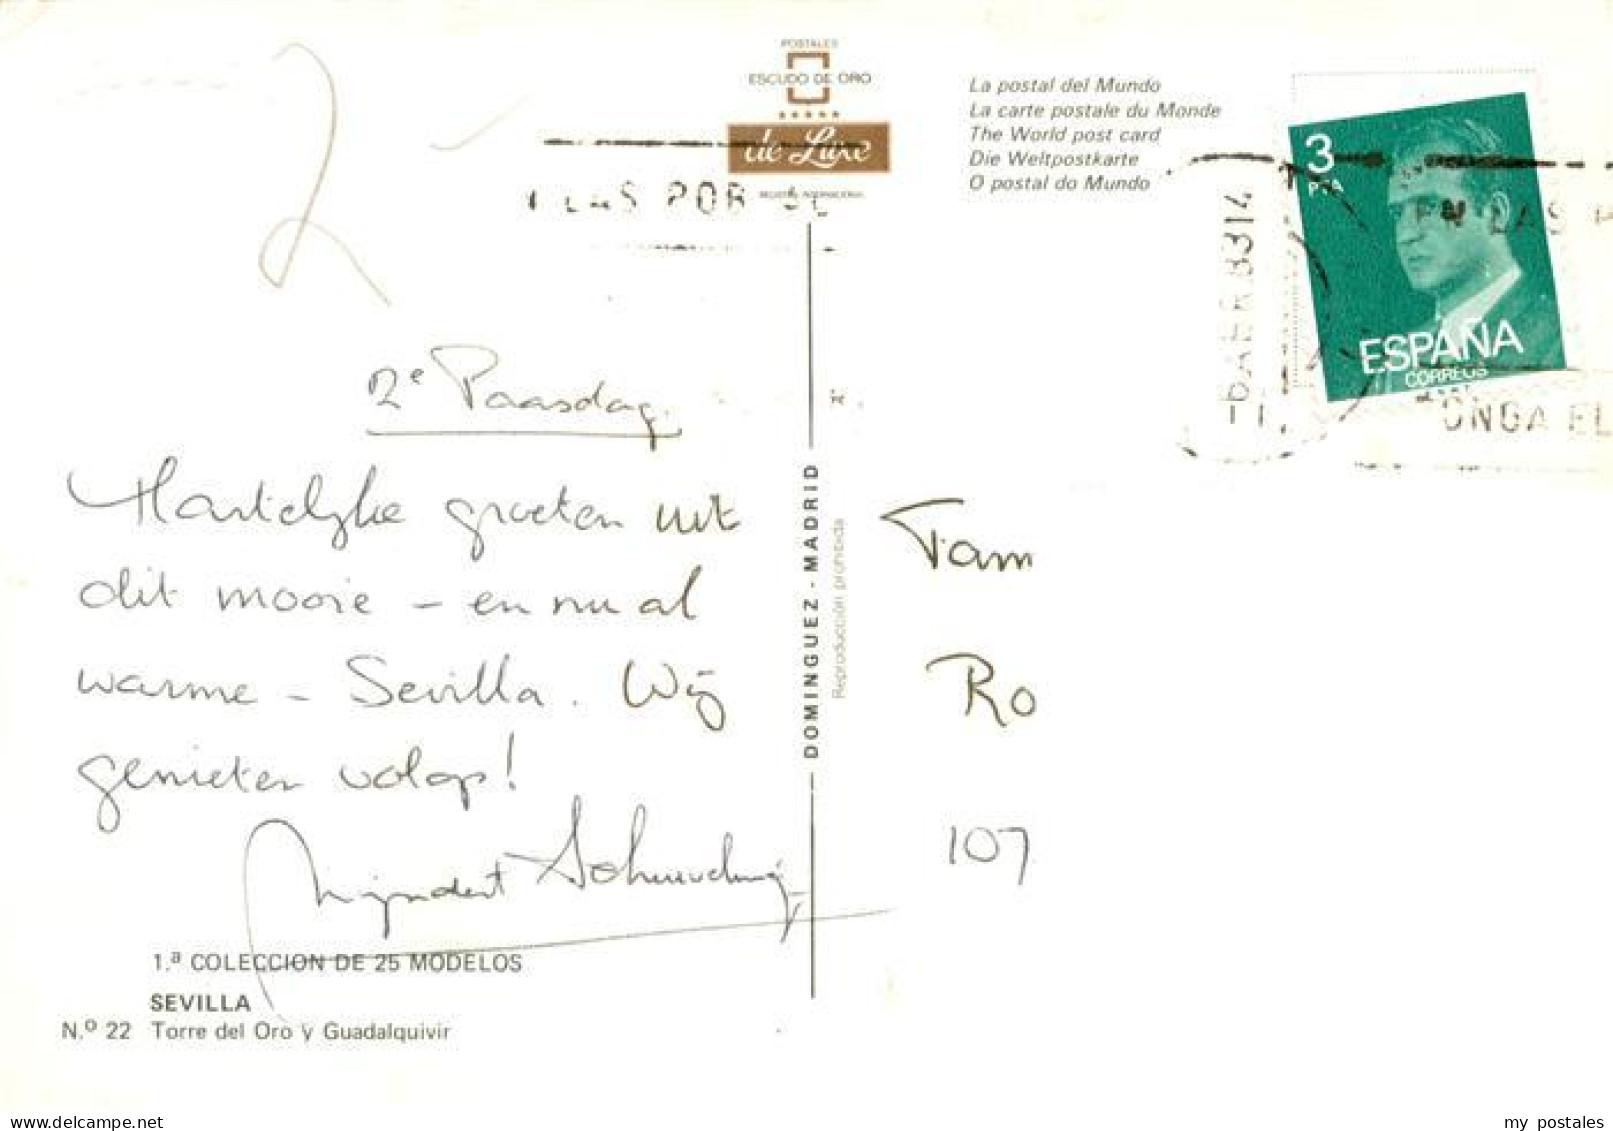 POSTALES
ESCUDO DE ORO
de Luxe
La postal del Mundo
La carte postale du Monde
The World post card
Die Weltpostkarte
O postal do Mundo
3
PTA
ESPAÑA
CORREOS
ONGA EL
2e Paasdag.
Hartelijke groeten uit
dit mooie - en nu al
warme - Sevilla. Wij
genieten volop!
Mijndert
Fam
Ro
107
DOMINGUEZ - MADRID
Reproducción prohibida
1.ª COLECCION DE 25 MODELOS
SEVILLA
N.º 22 Torre del Oro y Guadalquivir
www.delcampe.net
my_postales